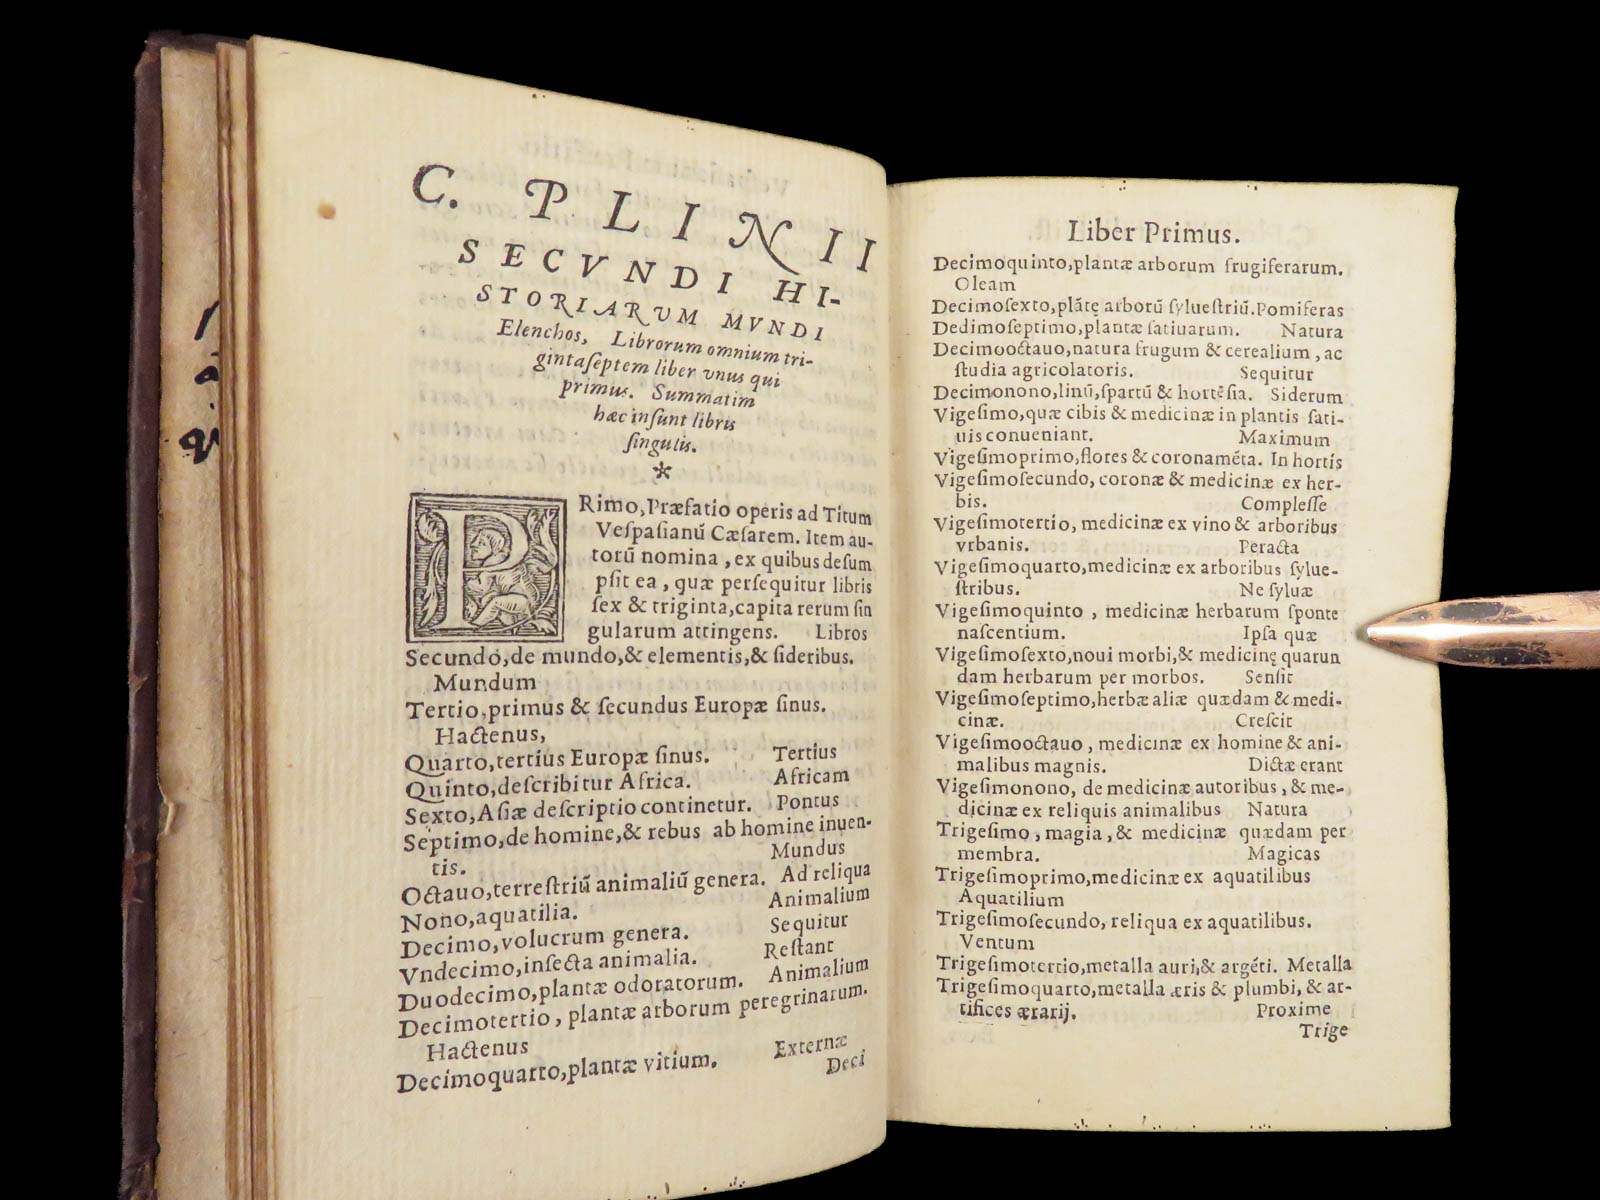 C. PLINII
SECVNDI HI-
STORIARVM MVNDI
Elenchos, Librorum omnium tri-
gintaſeptem liber vnus qui
primus. Summatim
hæc inſunt libris
ſingulis.
*
PRimo, Præfatio operis ad Titum
Veſpaſianū Cæſarem. Item au-
torū nomina, ex quibus deſum
pſit ea, quæ perſequitur libris
ſex & triginta, capita rerum ſin
gularum attingens. Libros
Secundo, de mundo, & elementis, & ſideribus.
Mundum
Tertio, primus & ſecundus Europæ ſinus.
Hactenus,
Quarto, tertius Europæ ſinus. Tertius
Quinto, deſcribitur Africa. Africam
Sexto, Aſiæ deſcriptio continetur. Pontus
Septimo, de homine, & rebus ab homine inuen-
tis. Mundus
Octauo, terreſtriū animaliū genera. Ad reliqua
Nono, aquatilia. Animalium
Decimo, volucrum genera. Sequitur
Vndecimo, inſecta animalia. Reſtant
Duodecimo, plantæ odoratorum. Animalium
Decimotertio, plantæ arborum peregrinarum.
Hactenus
Decimoquarto, plantæ vitium. Externæ
Deci
Liber Primus.
Decimoquinto, plantæ arborum frugiferarum.
Oleam
Decimoſexto, plātę arborū ſylueſtriū. Pomiferas
Dedimoſeptimo, plantæ ſatiuarum. Natura
Decimooctauo, natura frugum & cerealium, ac
ſtudia agricolatoris. Sequitur
Decimonono, linū, ſpartū & hortēſia. Siderum
Vigeſimo, quæ cibis & medicinæ in plantis ſati-
uis conueniant. Maximum
Vigeſimoprimo, flores & coronamēta. In hortis
Vigeſimoſecundo, coronæ & medicinæ ex her-
bis. Compleſſe
Vigeſimotertio, medicinæ ex vino & arboribus
vrbanis. Peracta
Vigeſimoquarto, medicinæ ex arboribus ſylue-
ſtribus. Ne ſyluæ
Vigeſimoquinto, medicinæ herbarum ſponte
naſcentium. Ipſa quæ
Vigeſimoſexto, noui morbi, & medicinę quarun
dam herbarum per morbos. Senſit
Vigeſimoſeptimo, herbæ aliæ quædam & medi-
cinæ. Creſcit
Vigeſimooctauo, medicinæ ex homine & ani-
malibus magnis. Dictæ erant
Vigeſimonono, de medicinæ autoribus, & me-
dicinæ ex reliquis animalibus Natura
Trigeſimo, magia, & medicinæ quædam per
membra. Magicas
Trigeſimoprimo, medicinæ ex aquatilibus
Aquatilium
Trigeſimoſecundo, reliqua ex aquatilibus.
Ventum
Trigeſimotertio, metalla auri, & argēti. Metalla
Trigeſimoquarto, metalla æris & plumbi, & ar-
tifices ærarij. Proxime
Trige